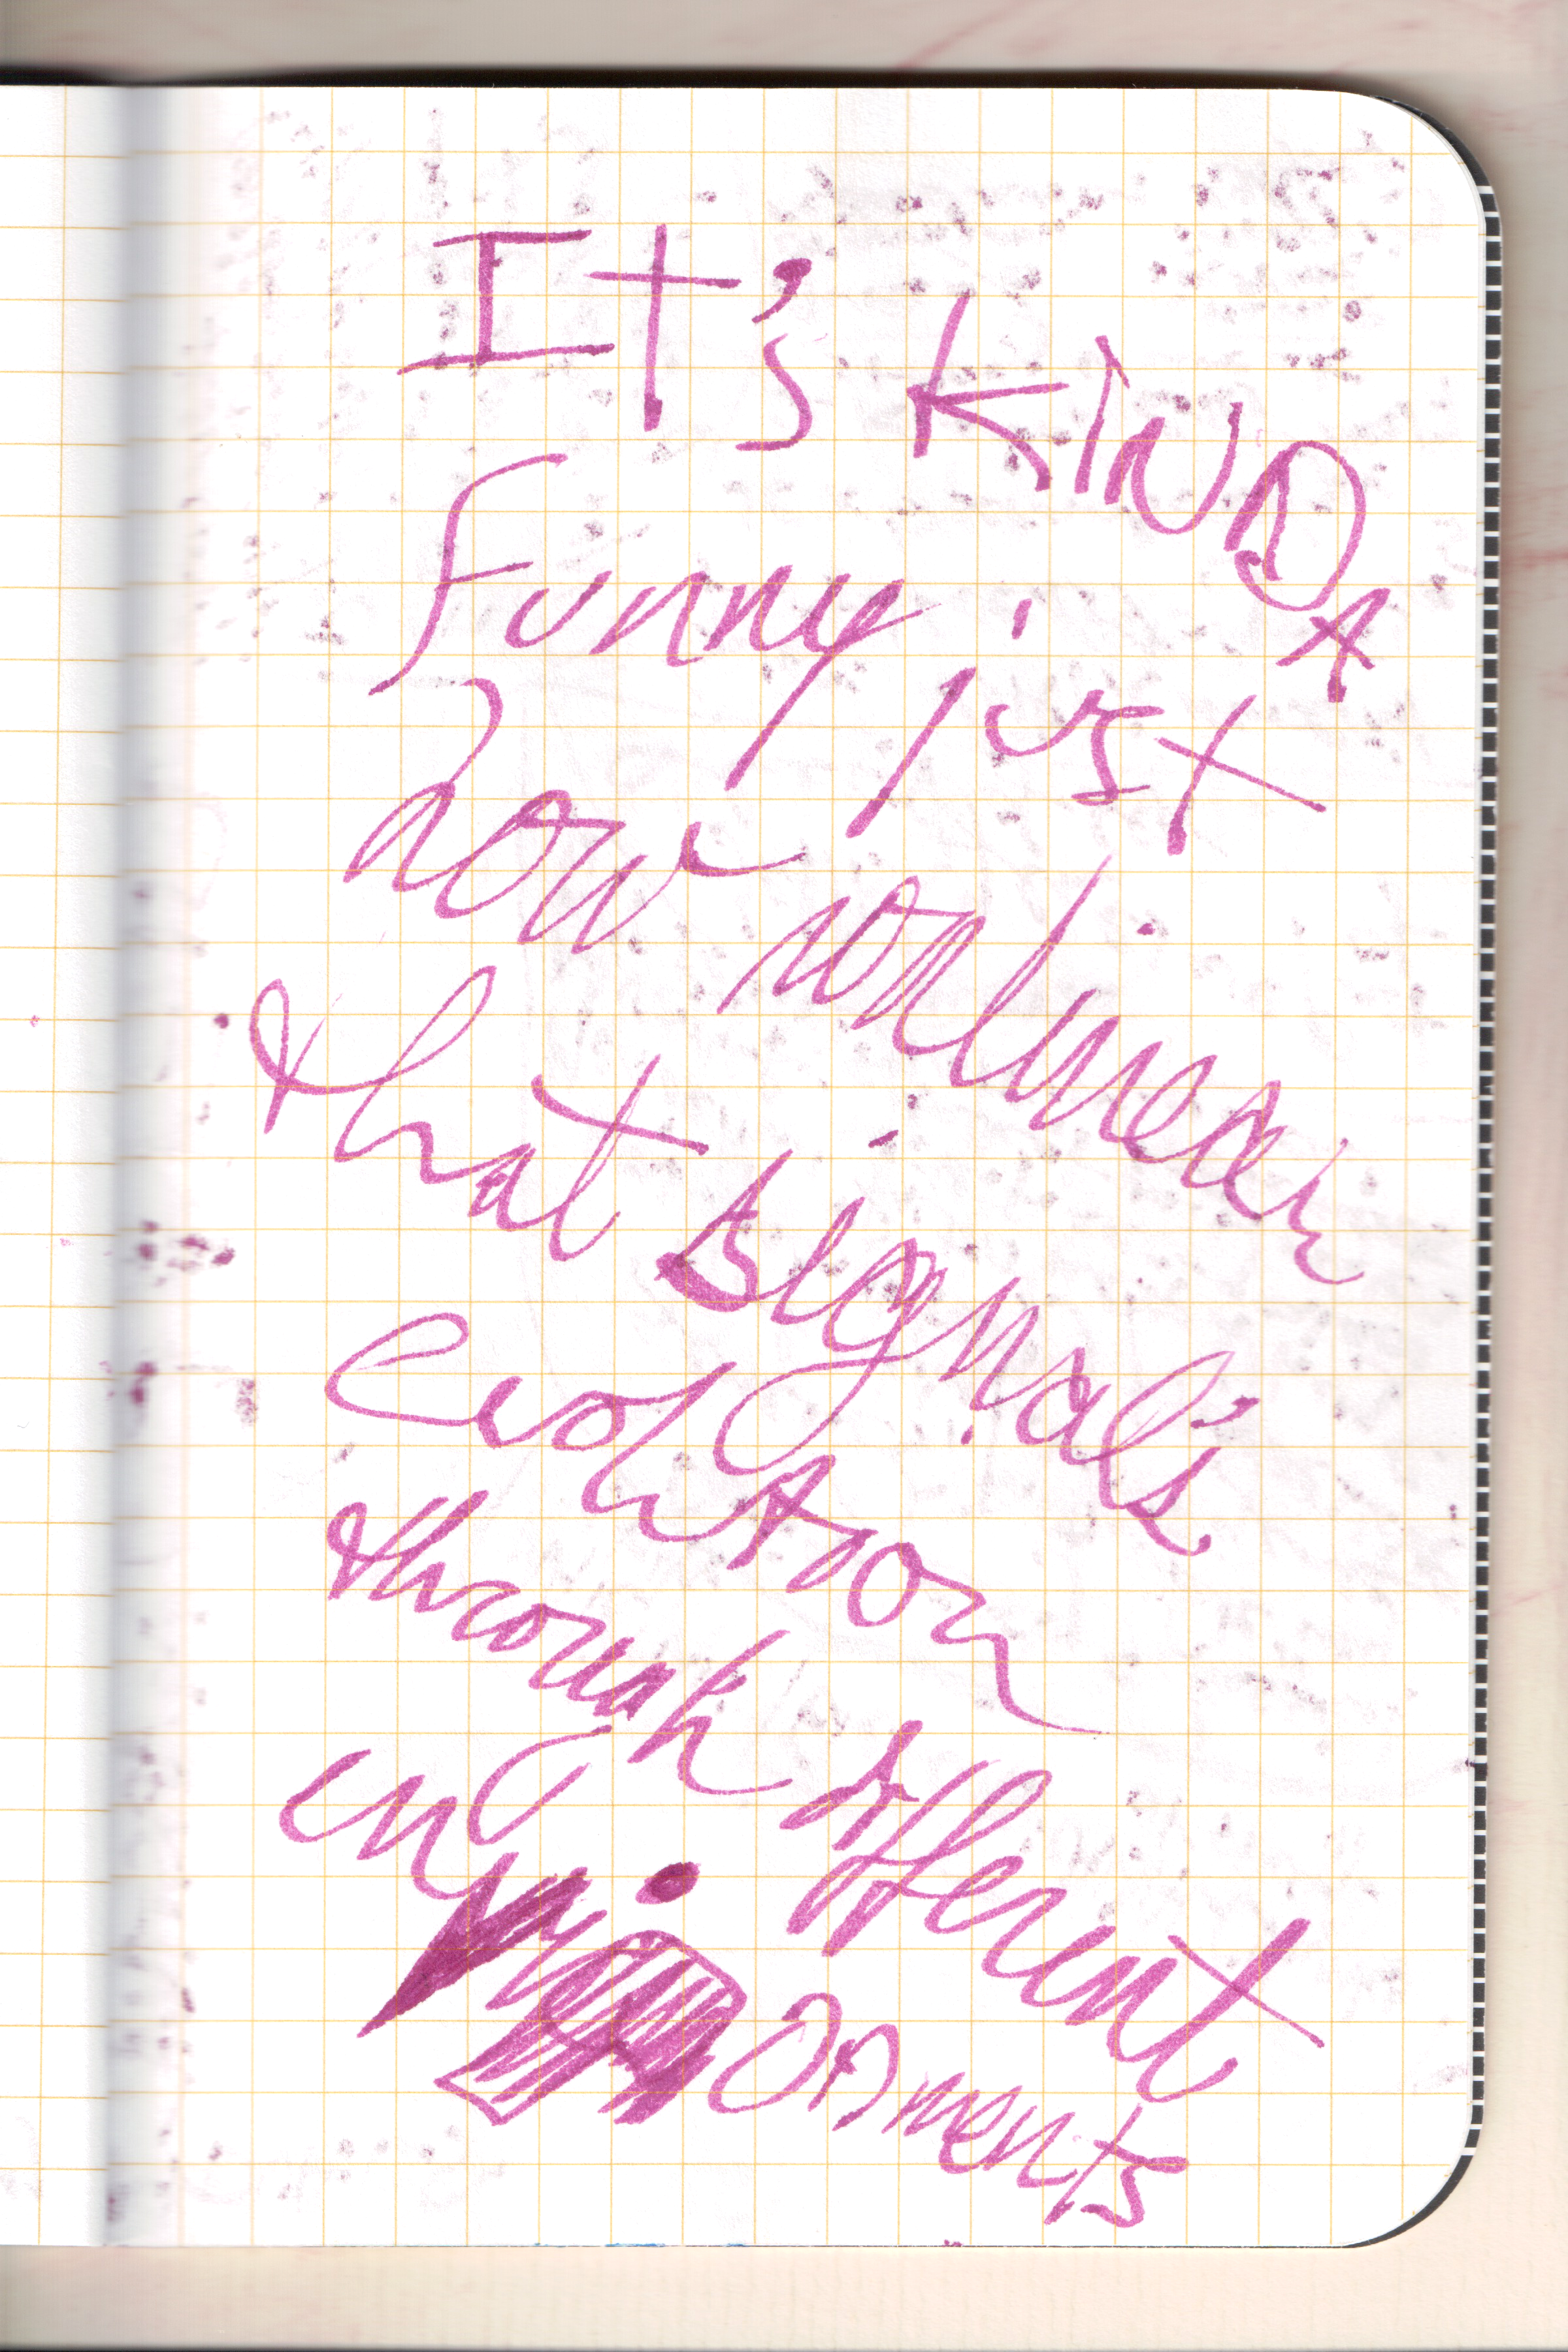 It's KINDA
funny just
how nonlinear
that signal's
evolution
through different
environments